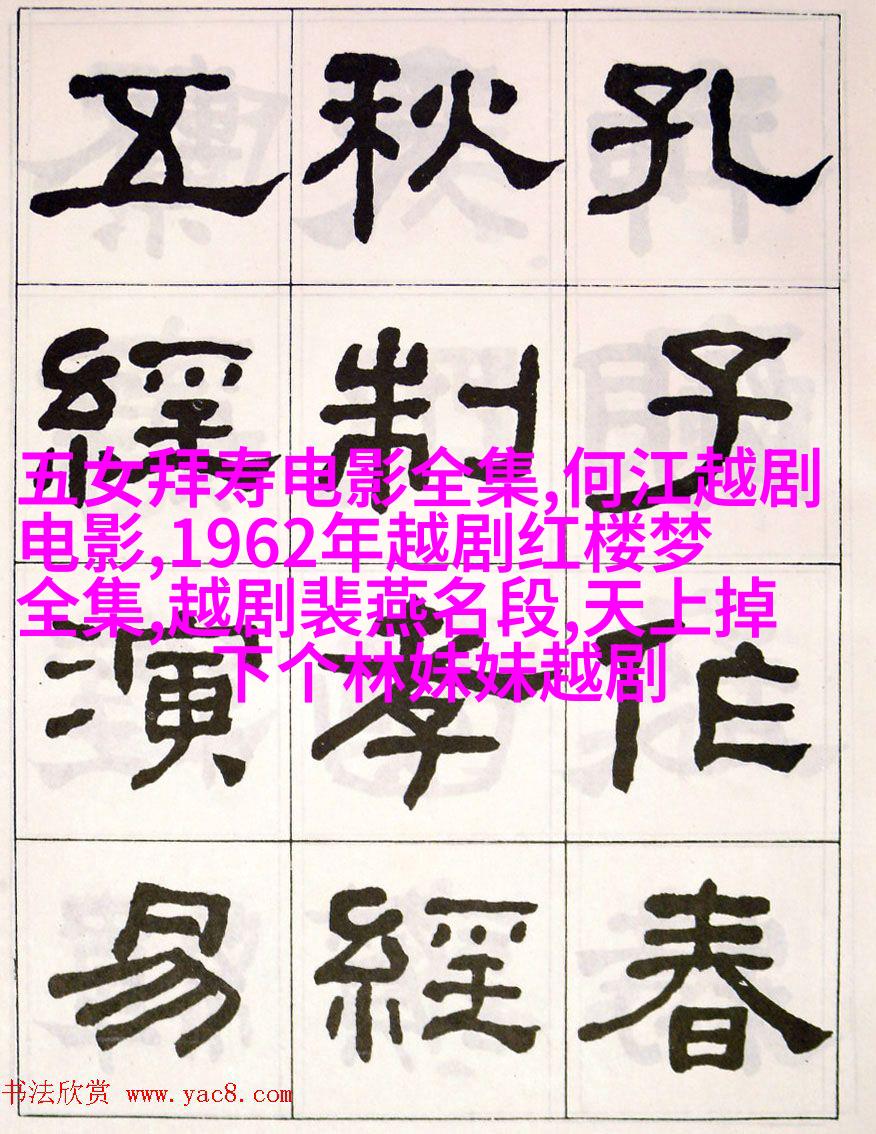 孔子作春
秋制孝經
五經演易
五女拜寿电影全集,何江越剧
电影,1962年越剧红楼梦
全集,越剧裴燕名段,天上掉
下个林妹妹越剧
书法欣赏 www.yac8.com